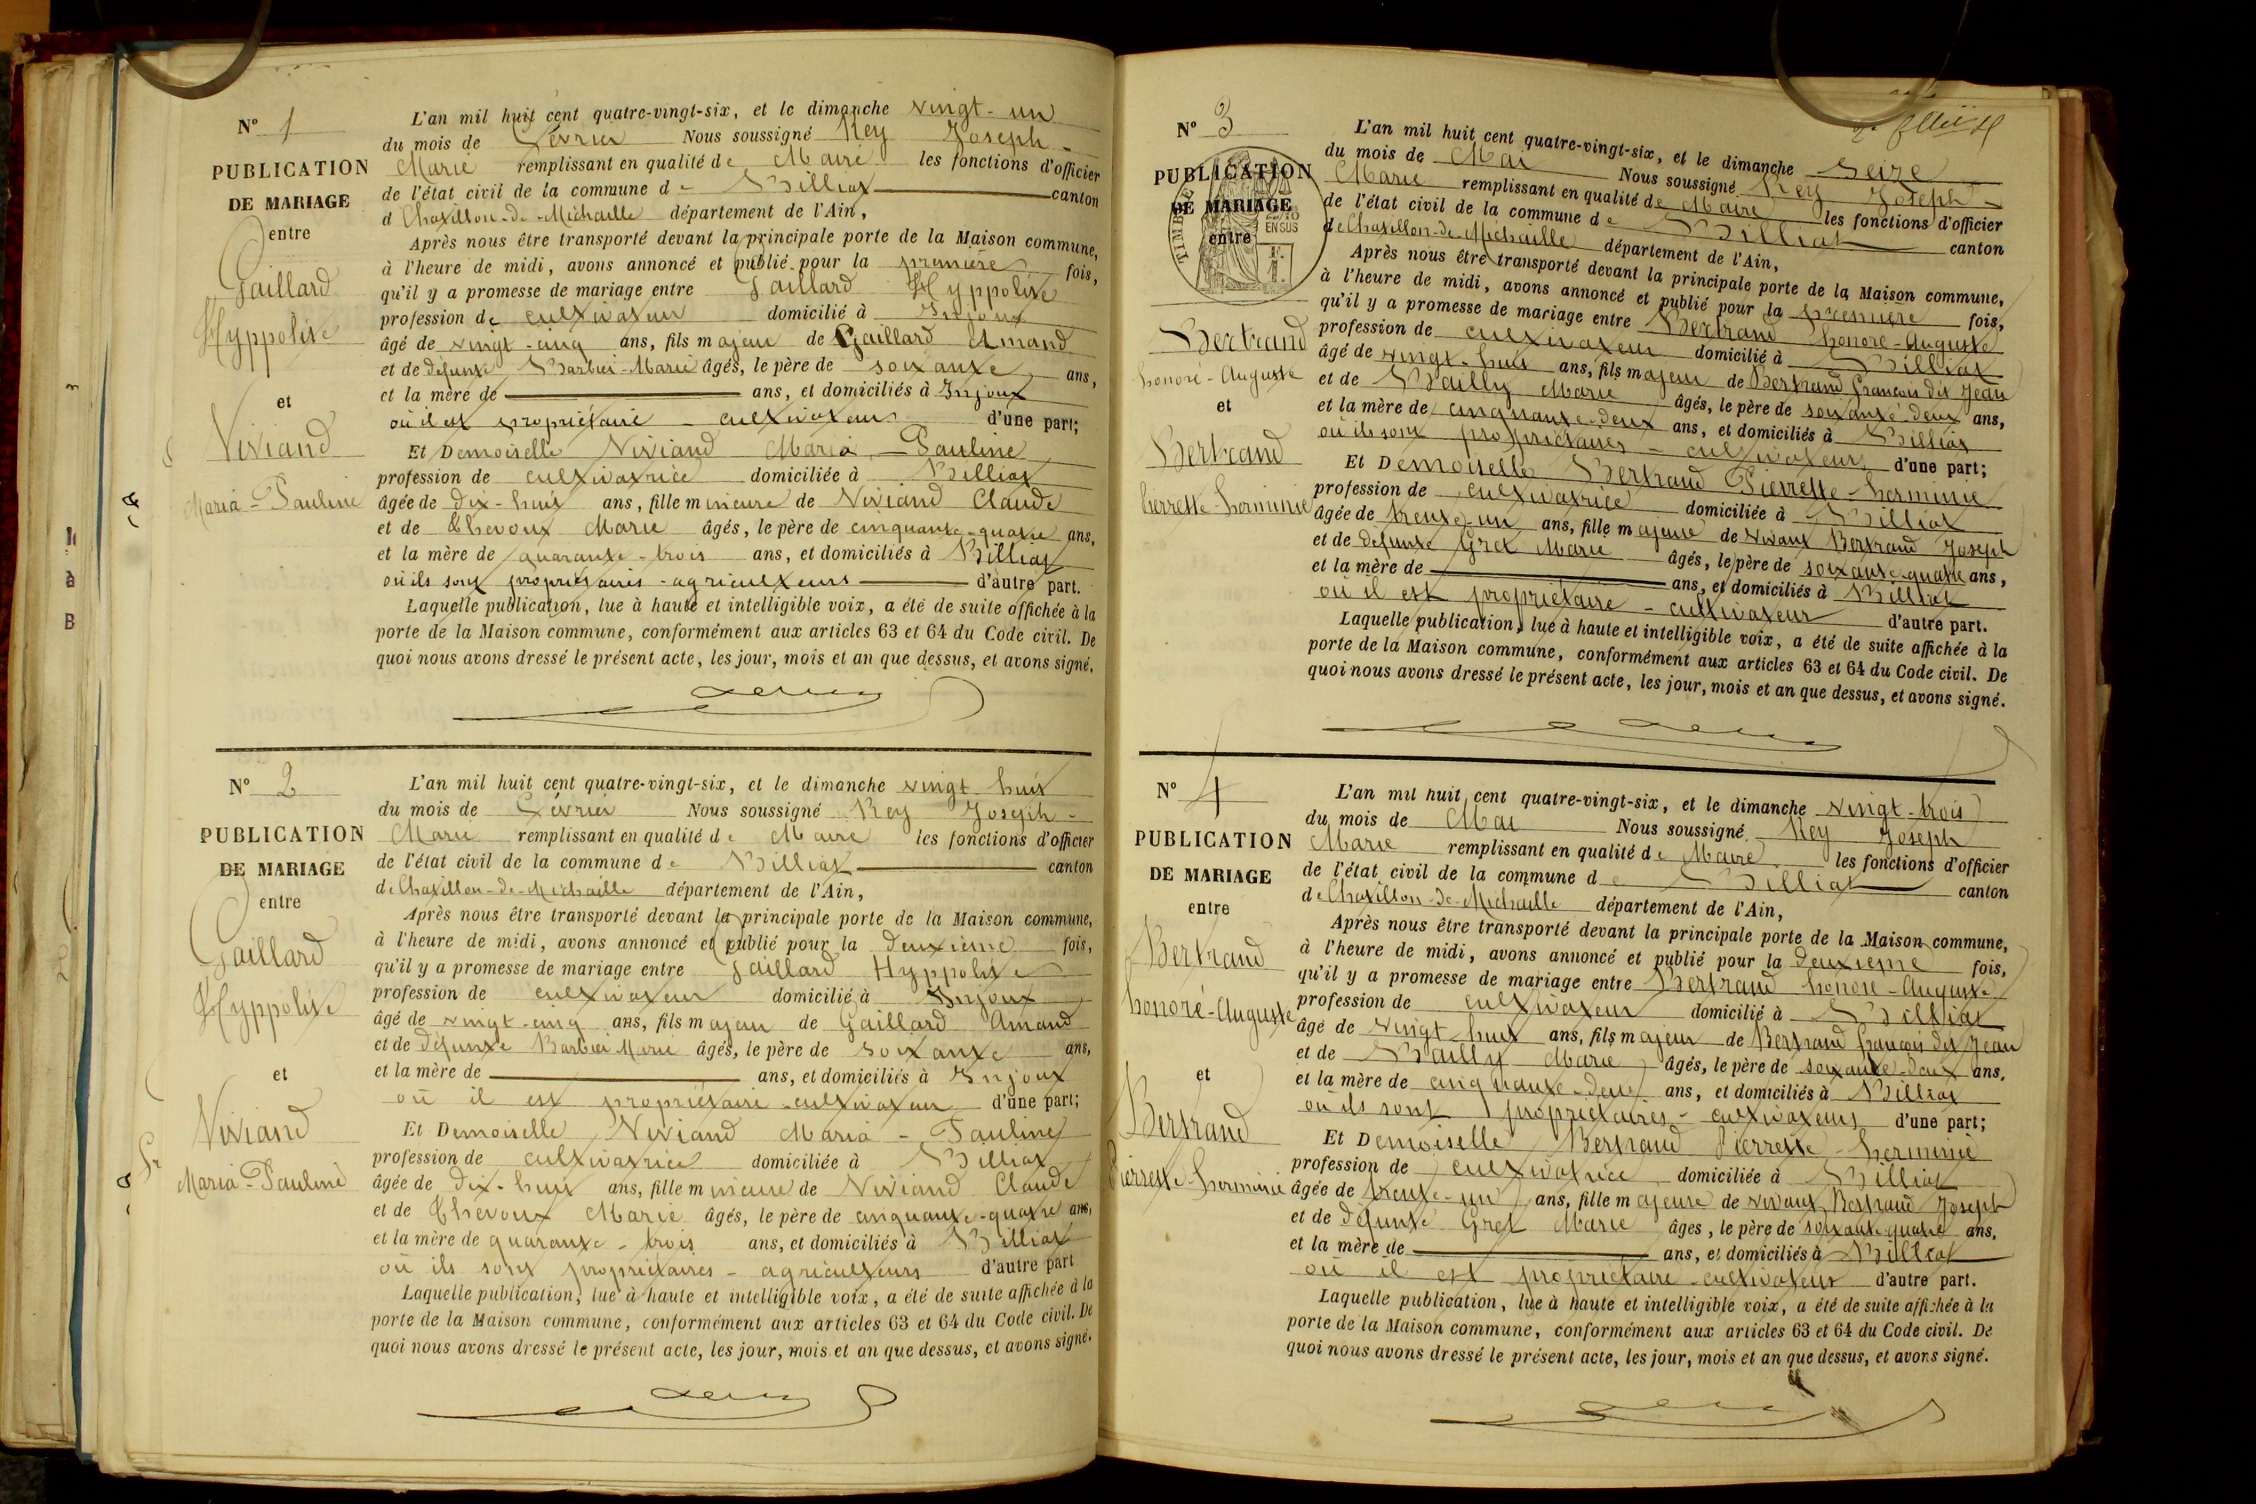 N° 1
PUBLICATION
DE MARIAGE
entre
Gaillard
Hyppolite
et
Viviand
Maria-Pauline
L'an mil huit cent quatre-vingt-six, et le dimanche vingt-un
du mois de Février Nous soussigné Rey Joseph-
Marie remplissant en qualité de Maire les fonctions d'officier
de l'état civil de la commune de Billiat canton
d Chatillon-de-Michaille département de l'Ain,
Après nous être transporté devant la principale porte de la Maison commune,
à l'heure de midi, avons annoncé et publié pour la première fois,
qu'il y a promesse de mariage entre Gaillard Hyppolite
profession de cultivateur domicilié à Injoux
âgé de vingt-cinq ans, fils majeur de Gaillard Amand
et de défunte Barbier-Marie âgés, le père de soixante ans,
et la mère de ans, et domiciliés à Injoux
où il est propriétaire - cultivateur d'une part;
Et Demoiselle Viviand Maria - Pauline
profession de cultivatrice domiciliée à Billiat
âgée de dix-huit ans, fille mineure de Viviand Claude
et de Thevoux Marie âgés, le père de cinquante-quatre ans,
et la mère de quarante-trois ans, et domiciliés à Billiat
où ils sont propriétaires - agriculteurs d'autre part.
Laquelle publication, lue à haute et intelligible voix, a été de suite affichée à la
porte de la Maison commune, conformément aux articles 63 et 64 du Code civil. De
quoi nous avons dressé le présent acte, les jour, mois et an que dessus, et avons signé.
N° 2
PUBLICATION
DE MARIAGE
entre
Gaillard
Hyppolite
et
Viviand
Maria-Pauline
L'an mil huit cent quatre-vingt-six, et le dimanche vingt huit
du mois de Février Nous soussigné Rey Joseph-
Marie remplissant en qualité de Maire les fonctions d'officier
de l'état civil de la commune de Billiat canton
de Chatillon-de-Michaille département de l'Ain,
Après nous être transporté devant la principale porte de la Maison commune,
à l'heure de midi, avons annoncé et publié pour la deuxième fois,
qu'il y a promesse de mariage entre Gaillard Hyppolite
profession de cultivateur domicilié à Injoux
âgé de vingt-cinq ans, fils majeur de Gaillard Amand
et de défunte Barbier Marie âgés, le père de soixante ans,
et la mère de ans, et domiciliés à Injoux
où il est propriétaire-cultivateur d'une part;
Et Demoiselle Viviand Maria - Pauline
profession de cultivatrice domiciliée à Billiat
âgée de dix-huit ans, fille mineure de Viviand Claude
et de Thevoux Marie âgés, le père de cinquante-quatre ans,
et la mère de quarante-trois ans, et domiciliés à Billiat
où ils sont propriétaires - agriculteurs d'autre part
Laquelle publication, lue à haute et intelligible voix, a été de suite affichée à la
porte de la Maison commune, conformément aux articles 63 et 64 du Code civil. De
quoi nous avons dressé le présent acte, les jour, mois et an que dessus, et avons signé.
N° 3
PUBLICATION
DE MARIAGE
entre
TIMBRE
2/10
EN SUS
Bertrand
honoré-Auguste
et
Bertrand
Pierrette-herminie
L'an mil huit cent quatre-vingt-six, et le dimanche Seize
du mois de Mai Nous soussigné Rey Joseph-
Marie remplissant en qualité de Maire les fonctions d'officier
de l'état civil de la commune de Billiat canton
de Chatillon-de-Michaille département de l'Ain,
Après nous être transporté devant la principale porte de la Maison commune,
à l'heure de midi, avons annoncé et publié pour la première fois,
qu'il y a promesse de mariage entre Bertrand honoré-Auguste
profession de cultivateur domicilié à Billiat
âgé de vingt-huit ans, fils majeur de Bertrand françois dit Jean
et de Bailly Marie âgés, le père de soixante-deux ans,
et la mère de cinquante-deux ans, et domiciliés à Billiat
où ils sont propriétaires - cultivateurs d'une part;
Et Demoiselle Bertrand Pierrette-herminie
profession de cultivatrice domiciliée à Billiat
âgée de trente-un ans, fille majeure de vivant Bertrand Joseph
et de défunte Gret Marie âgés, le père de soixante-quatre ans,
et la mère de ans, et domiciliés à Billiat
où il est propriétaire - cultivateur d'autre part.
Laquelle publication, lue à haute et intelligible voix, a été de suite affichée à la
porte de la Maison commune, conformément aux articles 63 et 64 du Code civil. De
quoi nous avons dressé le présent acte, les jour, mois et an que dessus, et avons signé.
N° 4
PUBLICATION
DE MARIAGE
entre
Bertrand
honoré-Auguste
et
Bertrand
Pierrette-herminie
L'an mil huit cent quatre-vingt-six, et le dimanche vingt-trois
du mois de Mai Nous soussigné Rey Joseph
Marie remplissant en qualité de Maire les fonctions d'officier
de l'état civil de la commune de Billiat canton
de Chatillon-de-Michaille département de l'Ain,
Après nous être transporté devant la principale porte de la Maison commune,
à l'heure de midi, avons annoncé et publié pour la deuxième fois,
qu'il y a promesse de mariage entre Bertrand honoré-Auguste
profession de cultivateur domicilié à Billiat
âgé de vingt-huit ans, fils majeur de Bertrand françois dit Jean
et de Bailly Marie âgés, le père de soixante-deux ans,
et la mère de cinquante-deux ans, et domiciliés à Billiat
où ils sont propriétaires - cultivateurs d'une part;
Et Demoiselle Bertrand Pierrette-herminie
profession de cultivatrice domiciliée à Billiat
âgée de trente-un ans, fille majeure de vivant Bertrand Joseph
et de défunte Gret Marie âgés, le père de soixante quatre ans,
et la mère de ans, et domiciliés à Billiat
où il est propriétaire-cultivateur d'autre part.
Laquelle publication, lue à haute et intelligible voix, a été de suite affichée à la
porte de la Maison commune, conformément aux articles 63 et 64 du Code civil. De
quoi nous avons dressé le présent acte, les jour, mois et an que dessus, et avons signé.